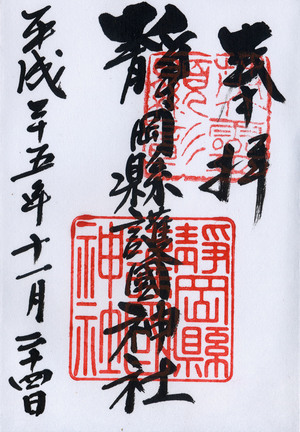 奉拝
靜岡縣護國神社
平成二十五年十一月二十四日
靜岡縣
護國
神社